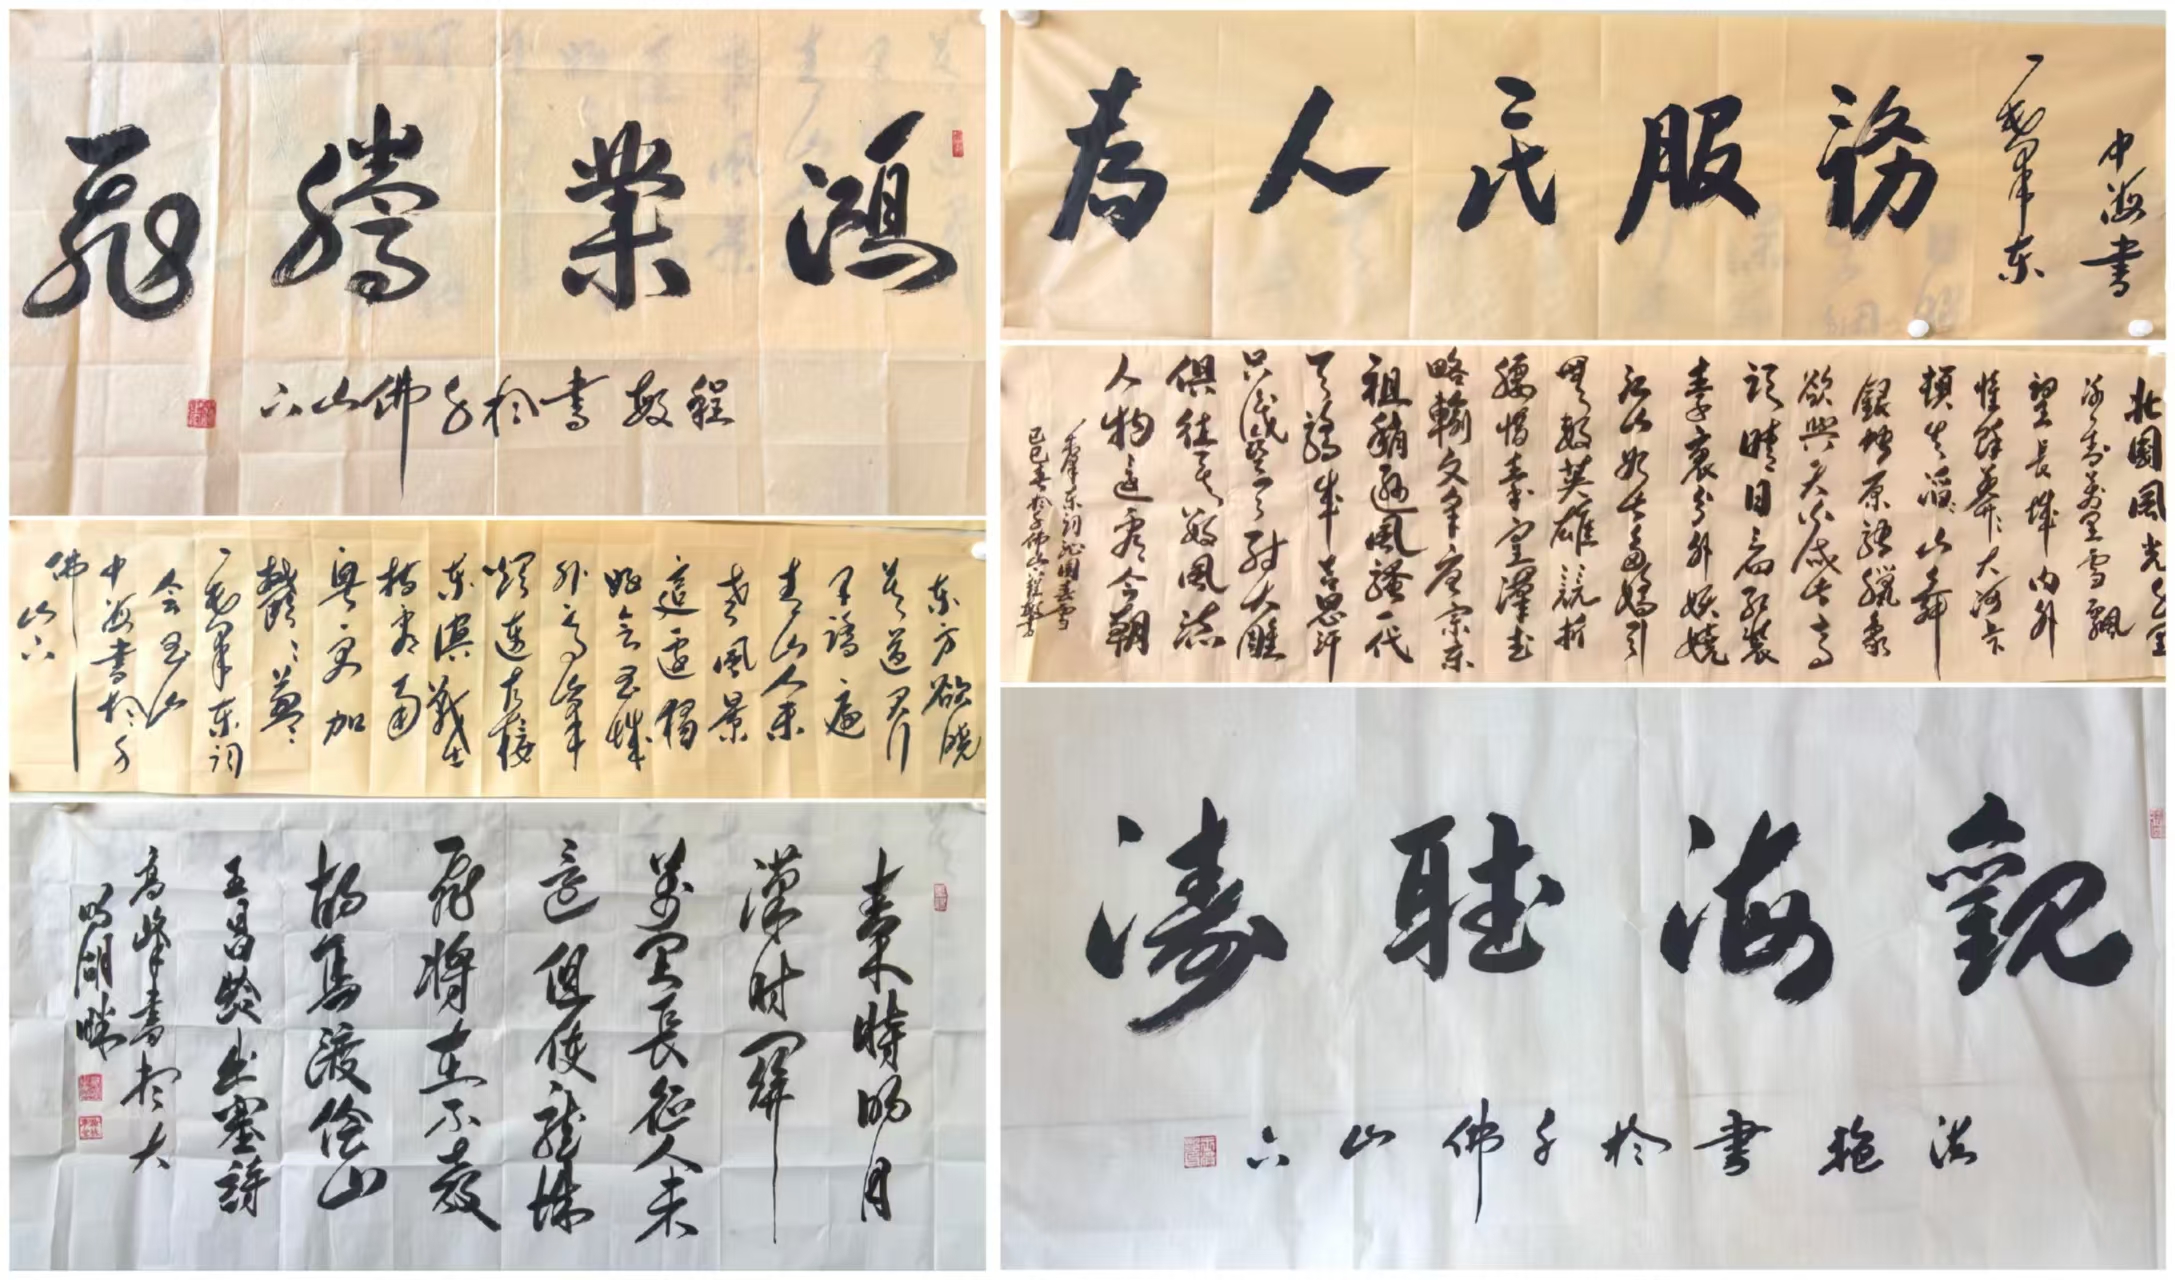 鴻業騰飛
書於千佛山下
为人民服務
毛澤东
中海書
东方欲晓
莫道君行
早踏遍
青山人未
老風景
這邊獨
好会昌城
外高峰
顛連直接
东溟戰士
指看南
粤更加
鬱鬱葱葱
毛澤东詞
会昌
中海書於千
佛山下
北國風光千里
冰封萬里雪飄
望長城内外
惟餘莽莽大河上下
頓失滔滔山舞
銀蛇原馳臘象
欲與天公試比高
須晴日看紅裝
素裹分外妖嬈
江山如此多嬌引
無数英雄競折
腰惜秦皇漢武
略輸文采唐宗宋
祖稍遜風騷一代
天驕成吉思汗
只識彎弓射大雕
俱往矣数風流
人物還看今朝
毛澤东詞沁園春雪
於千佛山下
秦時明月
漢时關
萬里長征人未
還但使龍城
飛将在不教
胡馬渡陰山
王昌龄出塞詩
高峰書於大
明湖畔
觀海聽濤
書於千佛山下